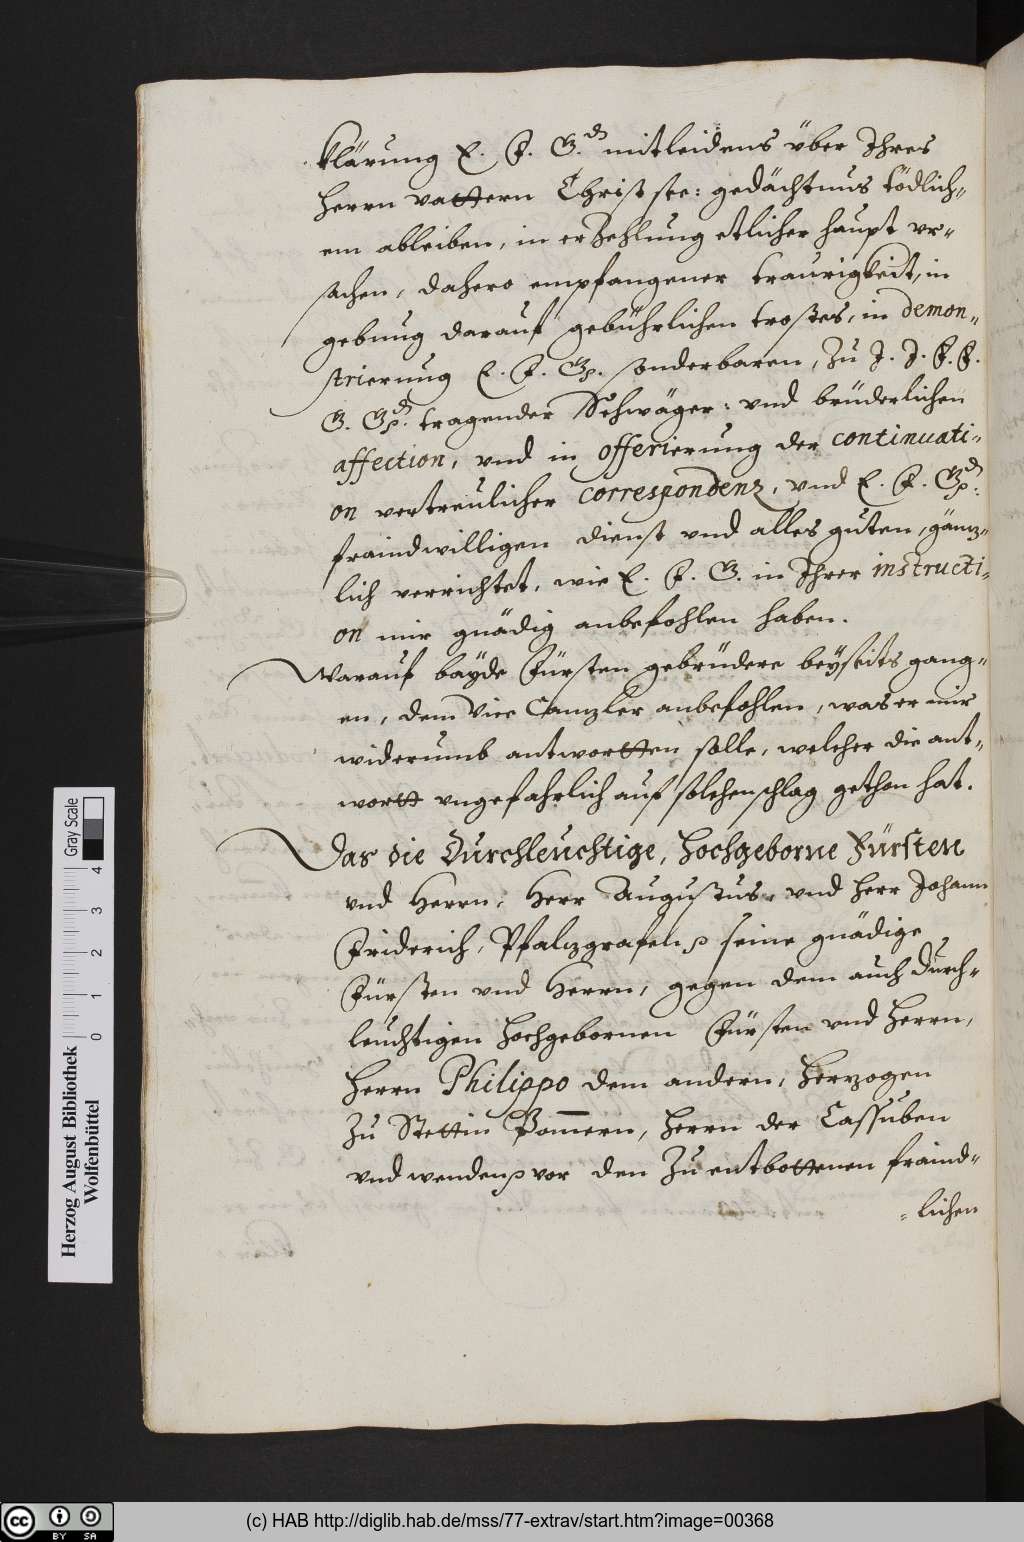 klärung E. F. G.d mitleidens über Ihres
Herrn vattern Christ see: gedächtnus tödlich-
em ableiben, in erZehlung etlicher haupt vr-
sachen, dahero empfangener traurigkeit, in
gebung darauf gebührlichen trostes, in demon-
strierung E. F. Gn. sonderbaren, Zu J. J. F. F.
G. Gn.d tragender Schwäger: vnd brüderlichen
affection, vnd in offerierung der continuati-
on vertreulicher correspondenz, vnd E. F. Gn.d:
fraindwilligen dienst vnd alles guten, gänz-
lich verrichtet, wie E. F. G. in Ihrer instructi-
on mir gnädig anbefohlen haben.
Warauf bäyde Fürsten gebrüdere beyseits gang-
en, dem Vice Canzler anbefohlen, was er mir
widerumb antwortten solle, welcher die ant-
wortt vngefahrlich auf solchen schlag gethon hat.
Das die Durchleuchtige, Hochgeborne Fürsten
vnd Herrn, Herr Augustus, vnd Herr Johann
Friderich, Pfalzgrafen seine gnädige
Fürsten vnd Herrn, gegen dem auch Durch-
leuchtigen Hochgebornen Fürsten vnd Herrn,
Herrn Philippo dem andern, Herzogen
Zu Stettin Pom̅ern, Herrn der Cassuben
vnd wenden vor den Zu entbottenen fraind-
-lichen
Herzog August Bibliothek
Wolfenbüttel
Gray Scale
0 1 2 3 4
cc BY SA
(c) HAB http://diglib.hab.de/mss/77-extrav/start.htm?image=00368